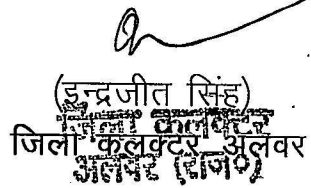 (इन्द्रजीत सिंह)
जिला कलक्टर
जिला कलक्टर, अलवर
अलवर (राज०)